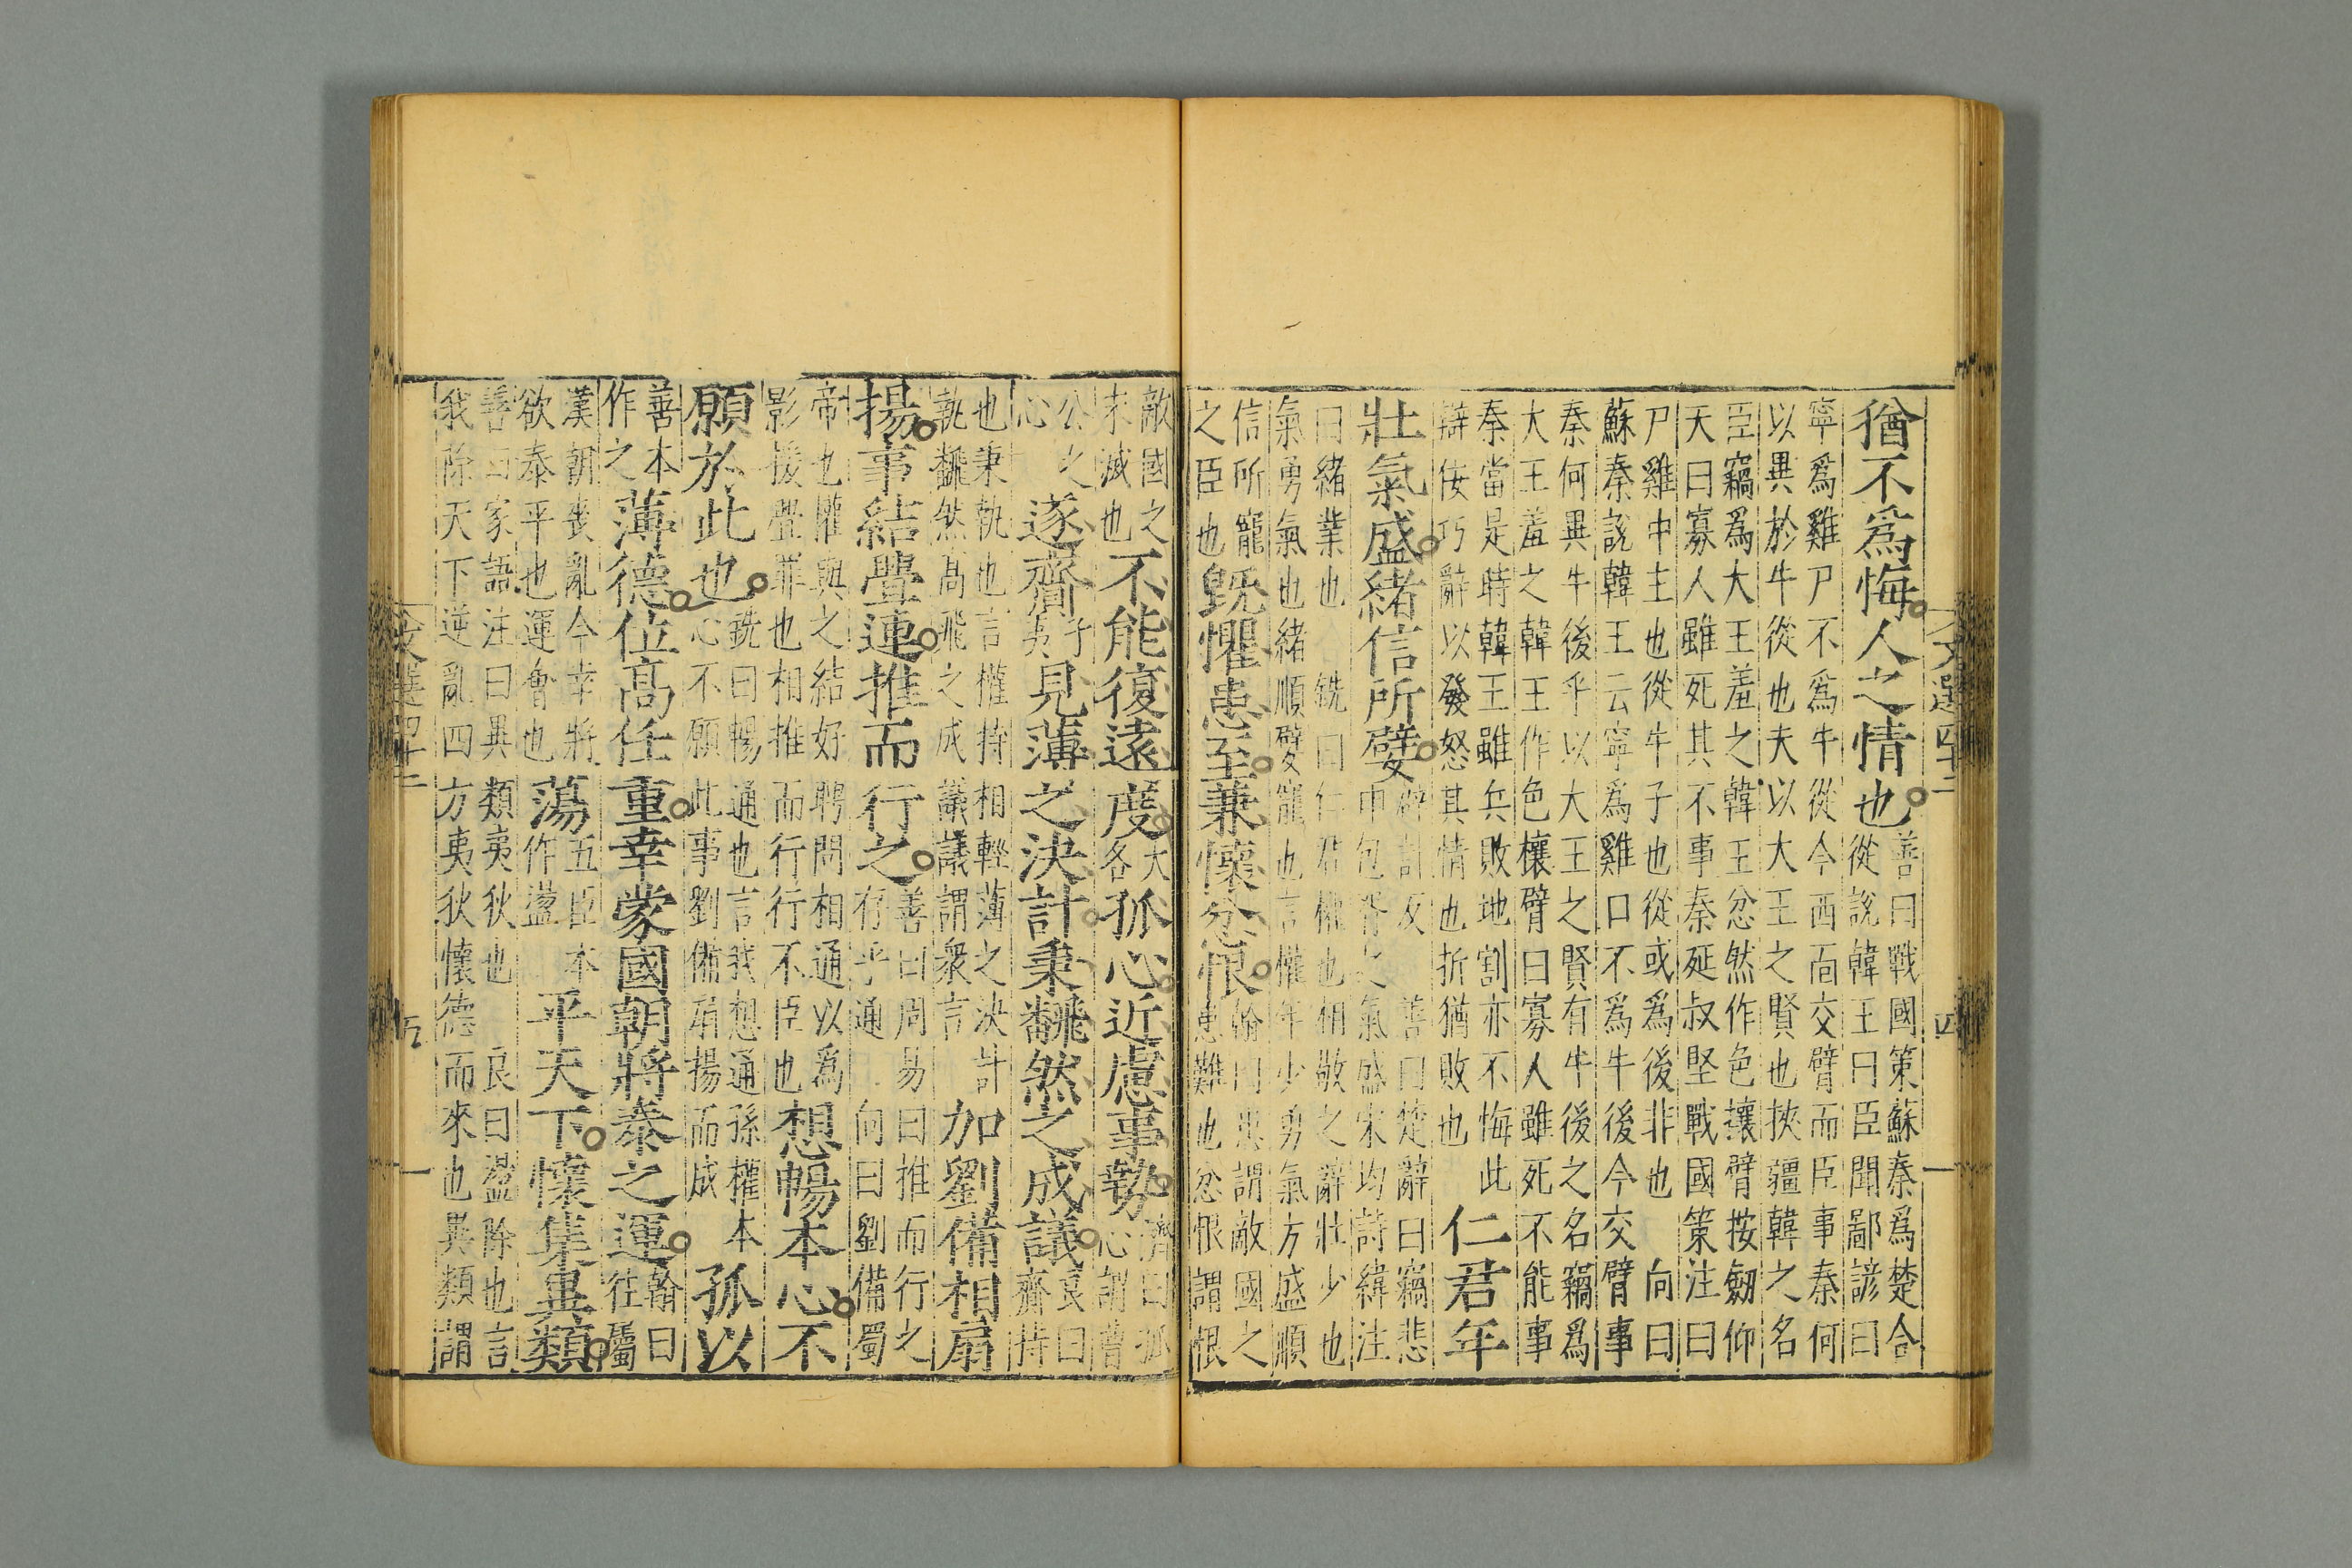 文選四十二 四
猶不爲悔人之情也
善曰戰國策蘇秦爲楚合
從說韓王曰臣聞鄙諺曰
寧爲雞尸不爲牛從今西面交臂而臣事秦何
以異於牛從也夫以大王之賢也挾疆韓之名
臣竊爲大王羞之韓王忿然作色攘臂按劒仰
天曰寡人雖死其不事秦延叔堅戰國策注曰
尸雞中主也從牛子也從或爲後非也 向曰
蘇秦說韓王云寧爲雞口不爲牛後今交臂事
秦何異牛後乎以大王之賢有牛後之名竊爲
大王羞之韓王作色欀臂曰寡人雖死不能事
秦當是時韓王雖兵敗地割亦不悔此
辯佞巧辭以發怒其情也折猶敗也
仁君年
壯氣盛緒信所嬖
計反 善曰楚辭曰竊悲
申包胥之氣盛宋均詩緯注
曰緒業也 銑曰仁君權也相敬之辭壯少也
氣勇氣也緒順嬖寵也言權年少勇氣方盛順
信所寵
之臣也
既懼患至兼懷忿恨
翰曰患謂敵國之
患難也忿恨謂恨
敵國之
未滅也
不能復遠度
大各
孤心近慮事勢
濟曰孤
心謂曹
公之
心
遂齎
子夷
見薄之決計秉翻然之成議
良曰
齎持
也秉執也言權持相輕薄之決計
執翻然高飛之成議議謂衆言
加劉備相扇
揚事結舋連推而行之
善曰周易曰推而行之
存乎通 向曰劉備蜀
帝也權與之結好聘問相通以爲
影援舋罪也相推而行行不臣也
想暢本心不
願於此也
銑曰暢通也言我想通孫權本
心不願此事劉備扇揚而成
孤以
善本
作之
薄德位高任重幸蒙國朝將泰之運
翰曰
往屬
漢朝喪亂今幸將
欲泰平也運會也
蕩
五臣本
作盪
平天下懷集異類
善曰家語注曰異類夷狄也 良曰盪除也言
我除天下逆亂四方夷狄懷德而來也異類謂
文選四十二 五